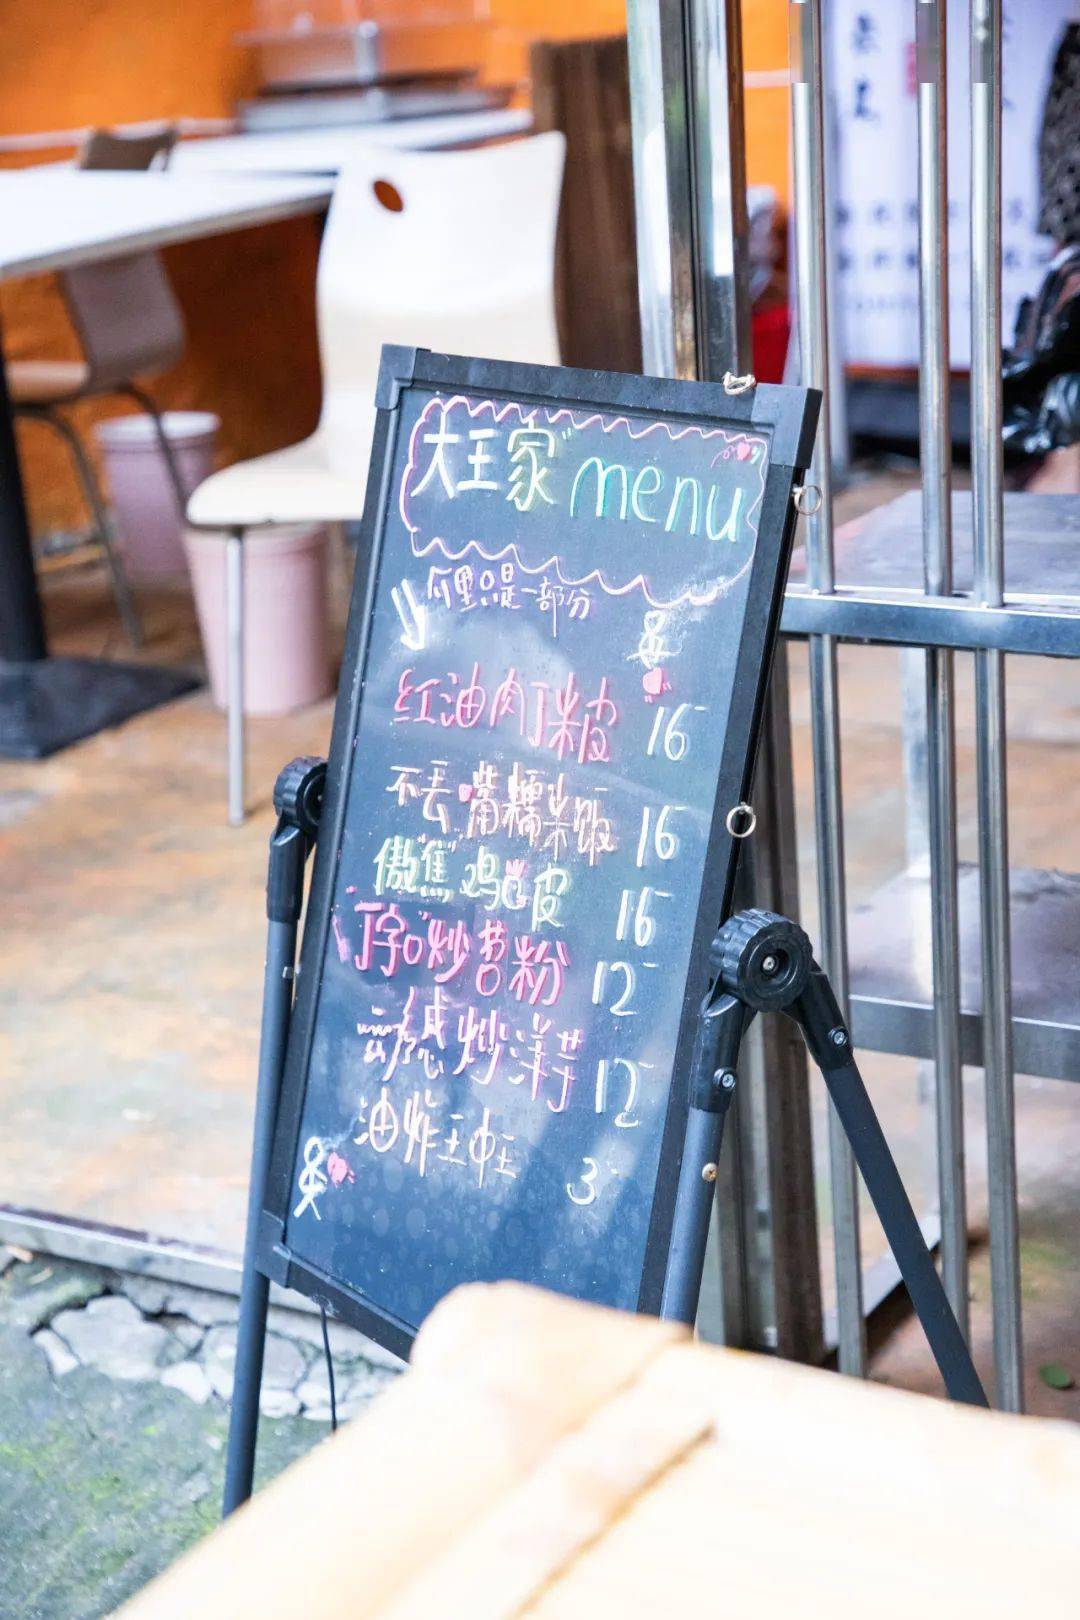 大王家 menu
这里只是一部分
红油肉丁米皮 16
不丢嘴糯米饭 16
傲"蕉"鸡 皮 16
丁字口炒苕粉 12
动感炒洋芋 12
油炸玉 3